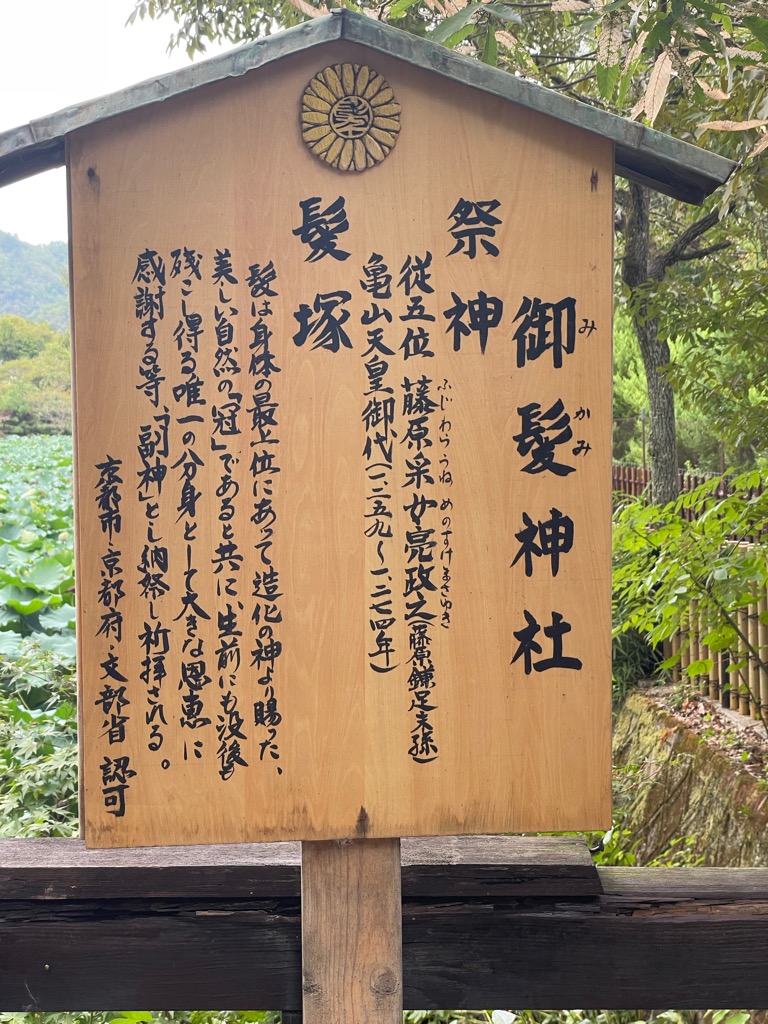 御髪神社
みかみ
祭神
従五位 藤原采女亮政之(藤原鎌足夫孫)
ふじわら うね めのすけ まさゆき
亀山天皇御代(一二五九〜一二七四年)
髪塚
髪は身体の最上位にあって、造化の神より賜った、
美しい自然の「冠」であると共に、生前にも没後も
残こし得る唯一の分身として大きな恩恵に
感謝する等、「副神」とし納祭し祈拝される。
京都市・京都府・文部省 認可